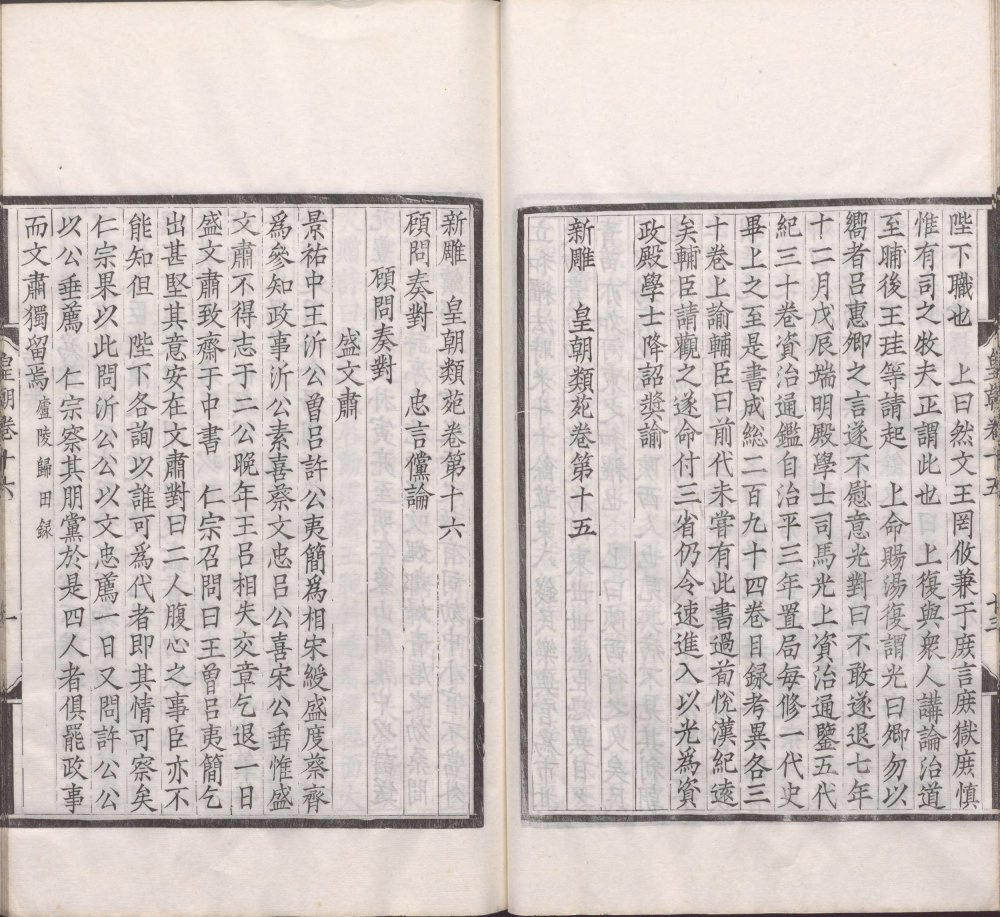 陛下職也　上曰然文王罔攸兼于庶言庶獄庶慎
惟有司之牧夫正謂此也　上復與衆人講論治道
至晡後王珪等請起　上命賜湯復謂光曰卿勿以
嚮者呂惠卿之言遂不慰意光對曰不敢遂退七年
十二月戊辰端明殿學士司馬光上資治通鑒五代
紀三十卷資治通鑑自治平三年置局每修一代史
畢上之至是書成総二百九十四卷目録考異各三
十卷上諭輔臣曰前代未嘗有此書過荀悅漢紀遠
矣輔臣請觀之遂命付三省仍令速進入以光爲資
政殿學士降詔奬諭
新雕　皇朝類苑卷第十五
新雕　皇朝類苑卷第十六
顧問奏對　　忠言讜論
顧問奏對
盛文肅
景祐中王沂公曾呂許公夷簡爲相宋綬盛度蔡齊
爲參知政事沂公素喜蔡文忠呂公喜宋公垂惟盛
文肅不得志于二公晚年王呂相失交章乞退一日
盛文肅致齋于中書　仁宗召問曰王曾呂夷簡乞
出甚堅其意安在文肅對曰二人腹心之事臣亦不
能知但　陛下各詢以誰可爲代者即其情可察矣
仁宗果以此問沂公公以文忠薦一日又問許公公
以公垂薦　仁宗察其朋黨於是四人者俱罷政事
而文肅獨留焉　廬陵歸田録
皇朝卷十六　一